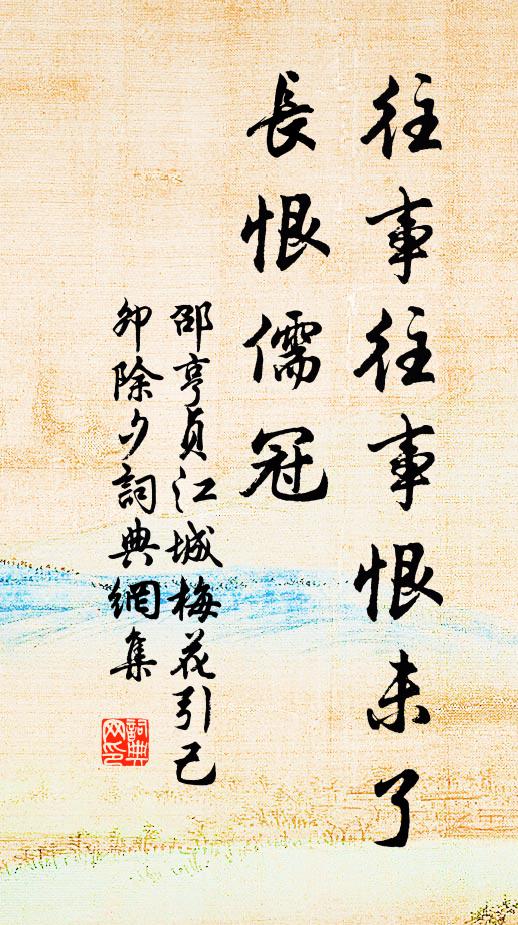 往事往事恨未了
長恨儒冠
邵亨貞江城梅花引己
卯除夕詞典網集
詞典
网印